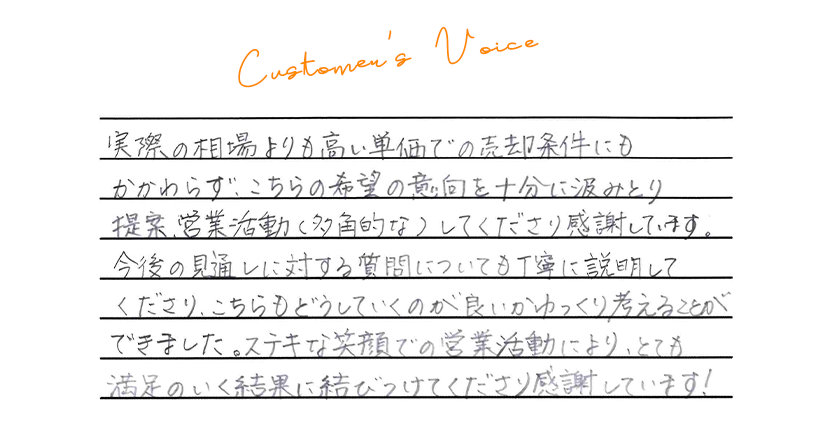 Customer's Voice
実際の相場よりも高い単価での売却条件にも
かかわらず、こちらの希望の意向を十分に汲みとり
提案、営業活動（多角的な）してくださり感謝しています。
今後の見通しに対する質問についても丁寧に説明して
くださり、こちらもどうしていくのが良いかゆっくり考えることが
できました。ステキな笑顔での営業活動により、とても
満足のいく結果に結びつけてくださり感謝しています！